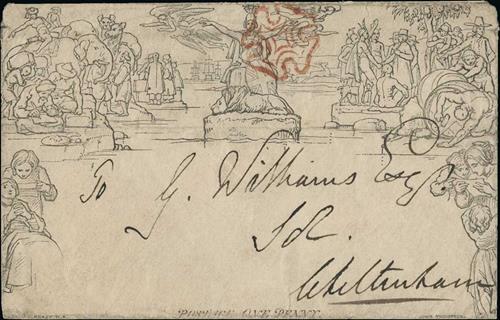 To G. Williams Esqr.
Sol.
Cheltenham
POSTAGE ONE PENNY.